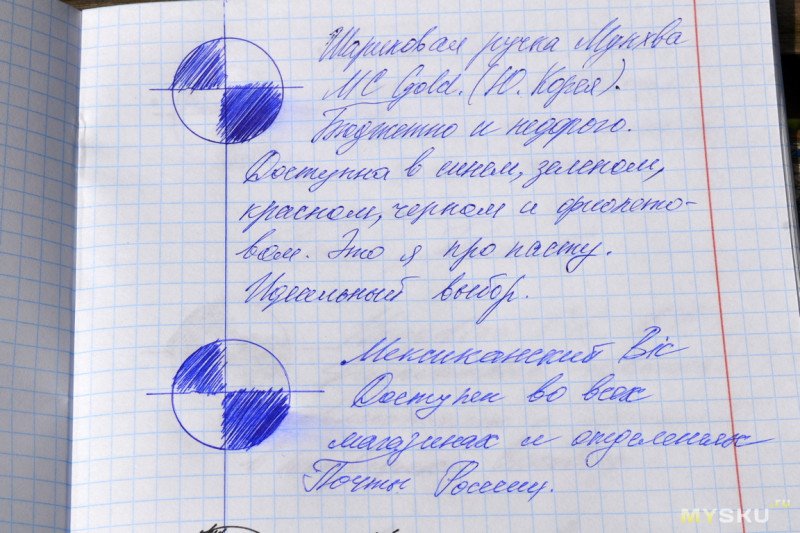 Шариковая ручка Мунхва
MC Gold. (Ю. Корея).
Бюджетно и недорого.
Доступна в синем, зеленом,
красном, черном и фиолето-
вом. Это я про пасту.
Идеальный выбор.
Мексиканский Bic
Доступен во всех
магазинах и отделениях
Почты России.
MYSKU.ru